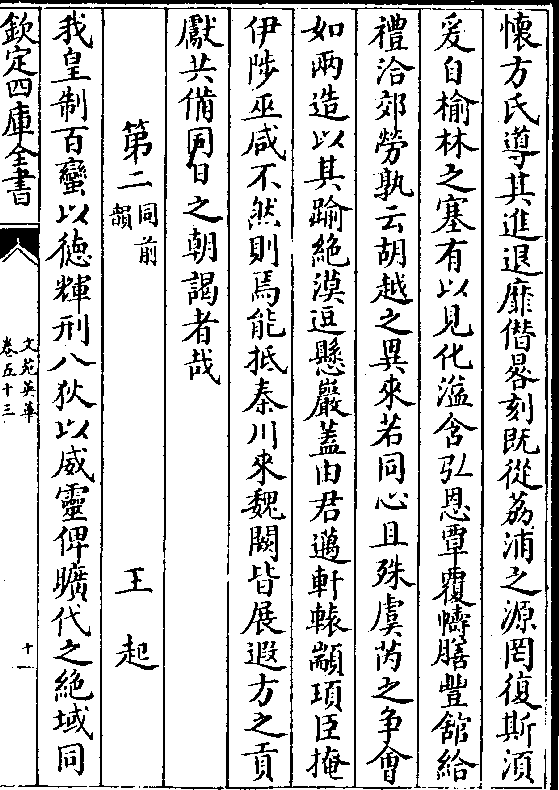 懷方氏導其進退靡偕晷刻既從荔浦之源罔復斯湏
爰自榆林之塞有以見化溢含弘恩覃覆幬膳豐館給
禮洽郊勞孰云胡越之異來若同心且殊虞芮之爭會
如兩造以其踰絶漠逗懸巖蓋由君邁軒轅顓頊臣掩
伊陟巫咸不然則焉能抵秦川來魏闕皆展遐方之貢
獻共備同日之朝謁者哉
第二同前韻 王起
我皇制百蠻以徳輝刑八狄以威靈俾曠代之絶域同
欽定四庫全書
文苑英華
卷五十三
十一